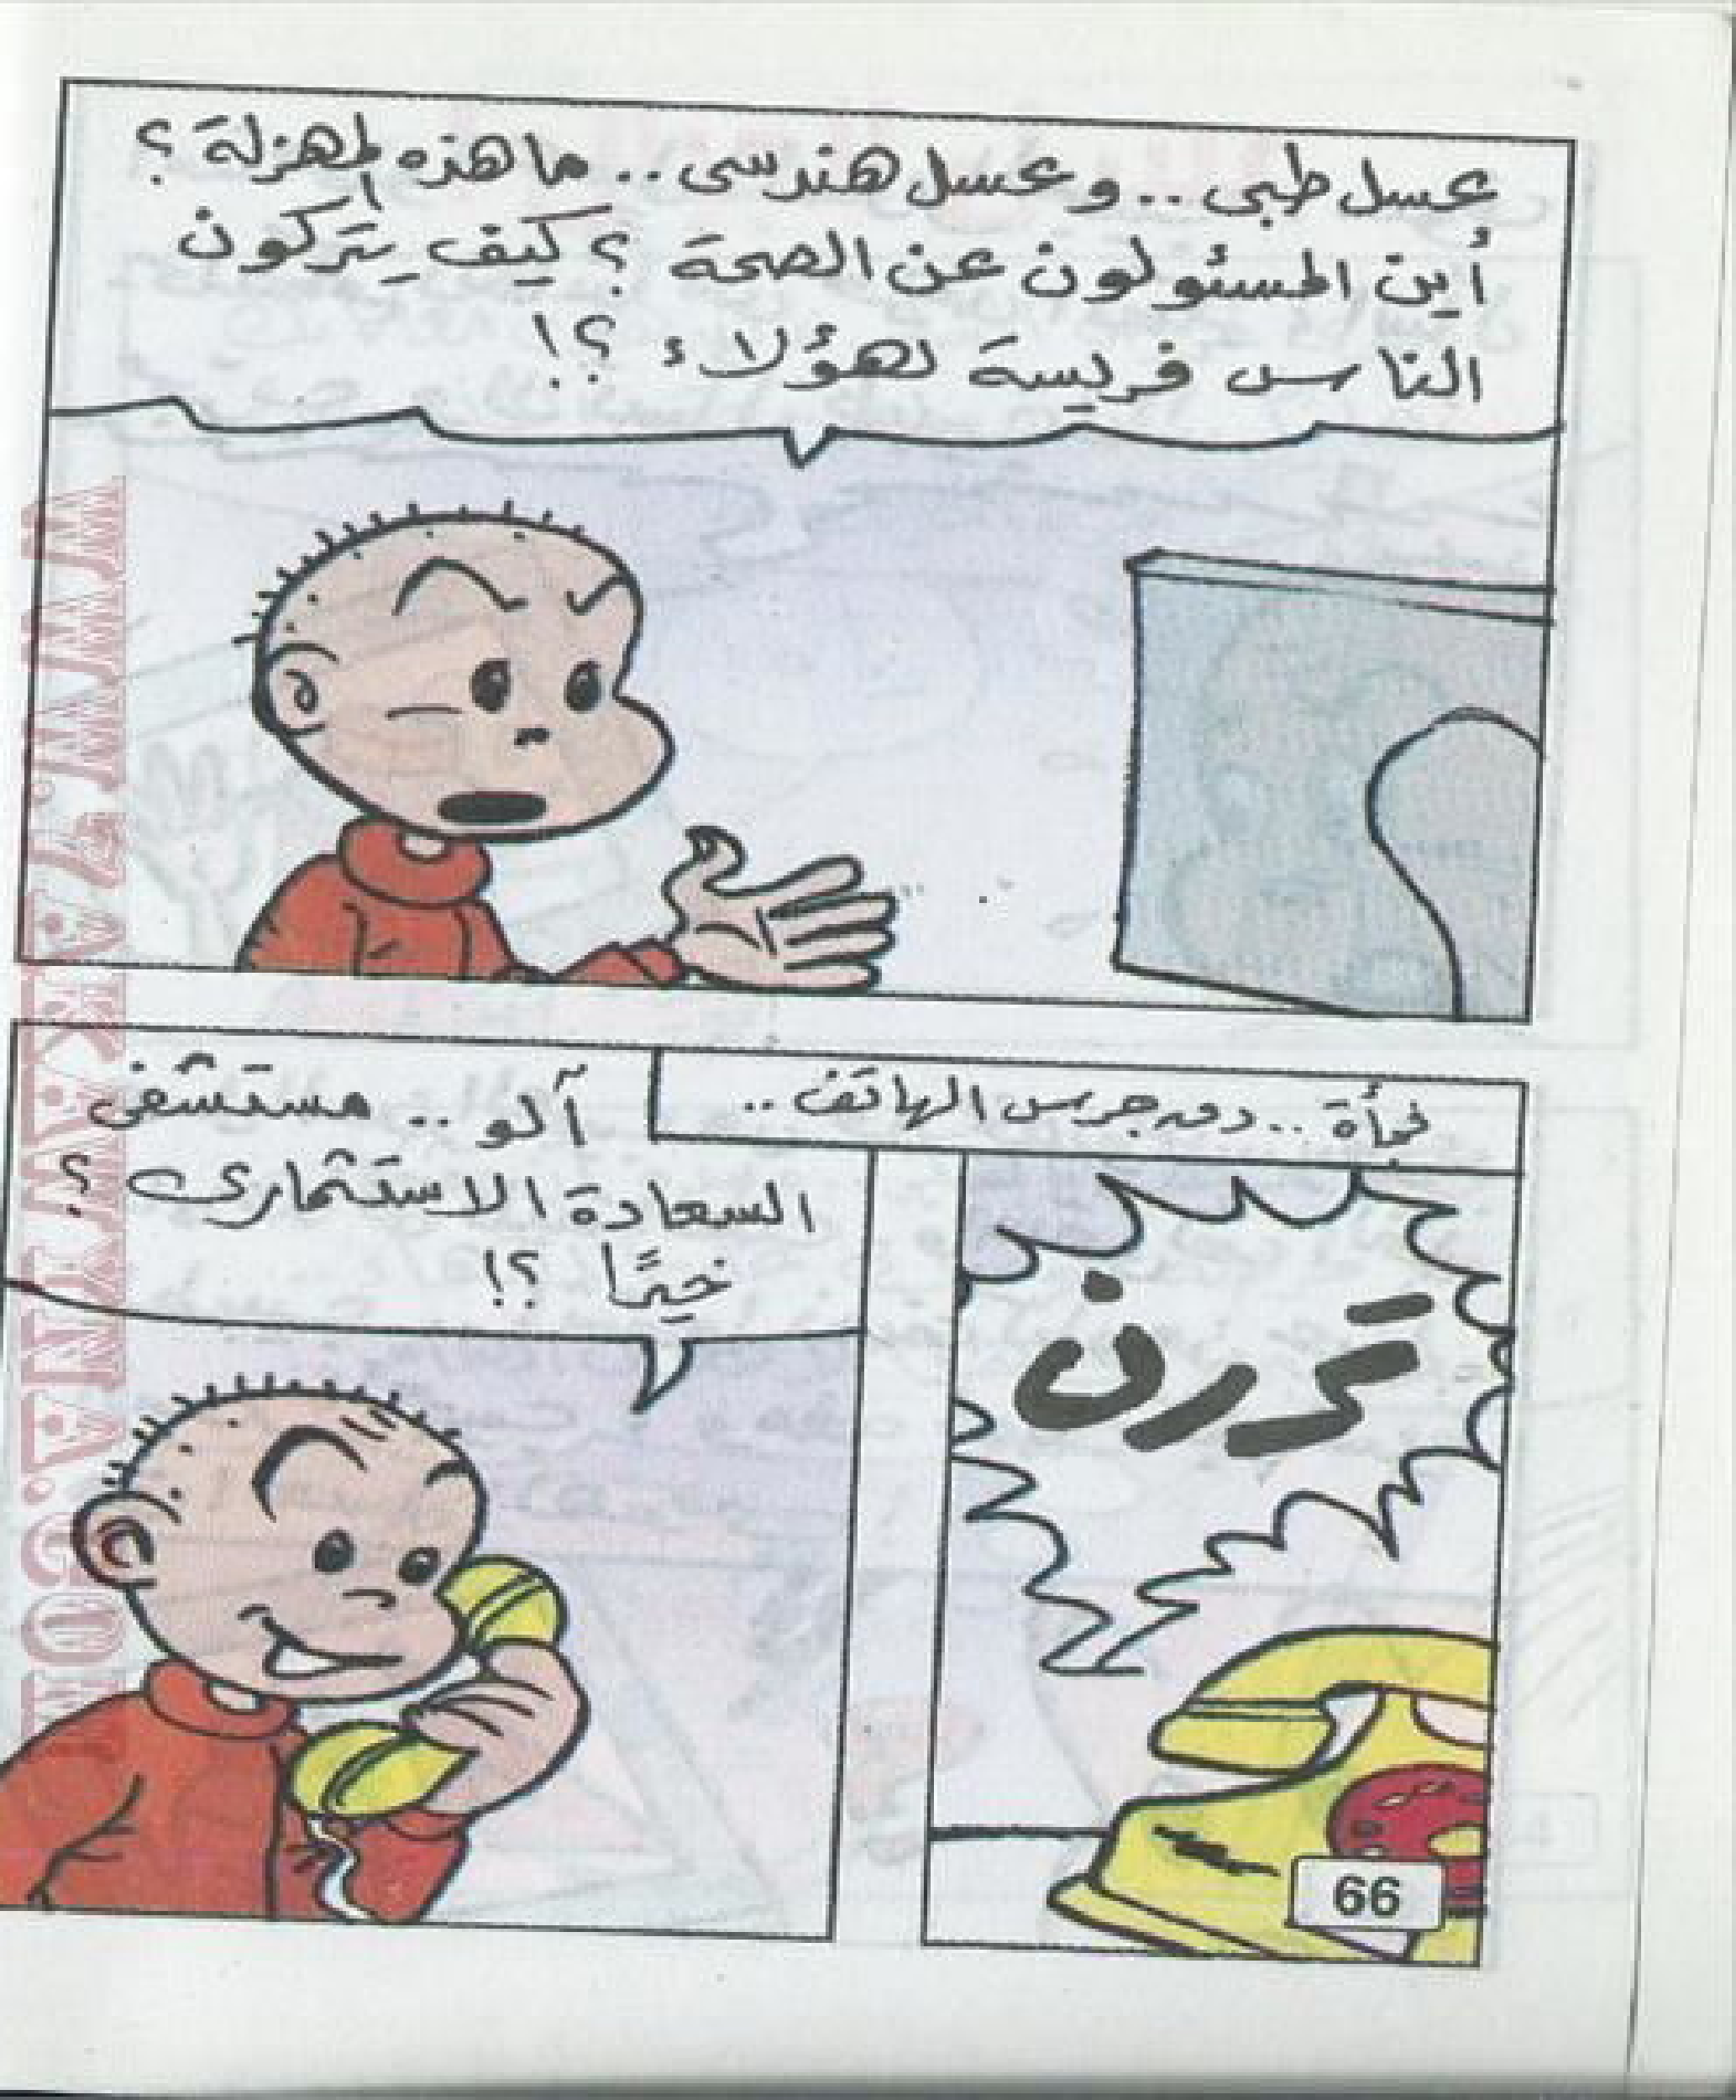 عسل طبى .. وعسل هندسى .. ما هذه المهزلة ؟
أين المسئولون عن الصحة ؟ كيف يتركون
الناس فريسة لهؤلاء ؟!
فجأة .. دق جرس الهاتف ..
ترررن
آلو .. مستشفى
السعادة الاستثمارى ؟
خيرًا ؟!
66
WWW.7AKAWINA.COM